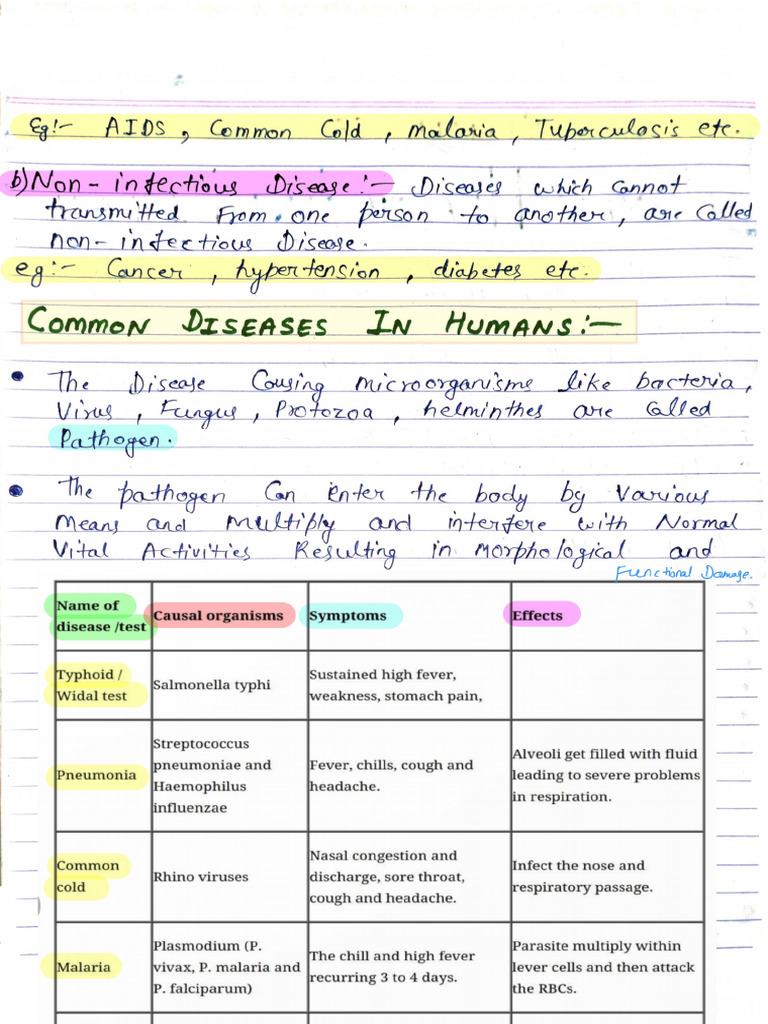 Eg:- AIDS, Common Cold, Malaria, Tuberculosis etc.
b) Non-infectious Disease:- Diseases which cannot
transmitted from one person to another, are Called
non-infectious Disease.
eg:- Cancer, hypertension, diabetes etc.
COMMON DISEASES IN HUMANS:-
• The Disease Causing microorganisms like bacteria,
Virus, Fungus, Protozoa, helminthes are Called
Pathogen.
• The pathogen Can Enter the body by Various
Means and Multiply and interfere with Normal
Vital Activities Resulting in Morphological and
Functional Damage.
Name of disease /test Causal organisms Symptoms Effects
Typhoid / Widal test
Salmonella typhi
Sustained high fever,
weakness, stomach pain,
Pneumonia
Streptococcus
pneumoniae and
Haemophilus
influenzae
Fever, chills, cough and
headache.
Alveoli get filled with fluid
leading to severe problems
in respiration.
Common
cold
Rhino viruses
Nasal congestion and
discharge, sore throat,
cough and headache.
Infect the nose and
respiratory passage.
Malaria
Plasmodium (P.
vivax, P. malaria and
P. falciparum)
The chill and high fever
recurring 3 to 4 days.
Parasite multiply within
lever cells and then attack
the RBCs.